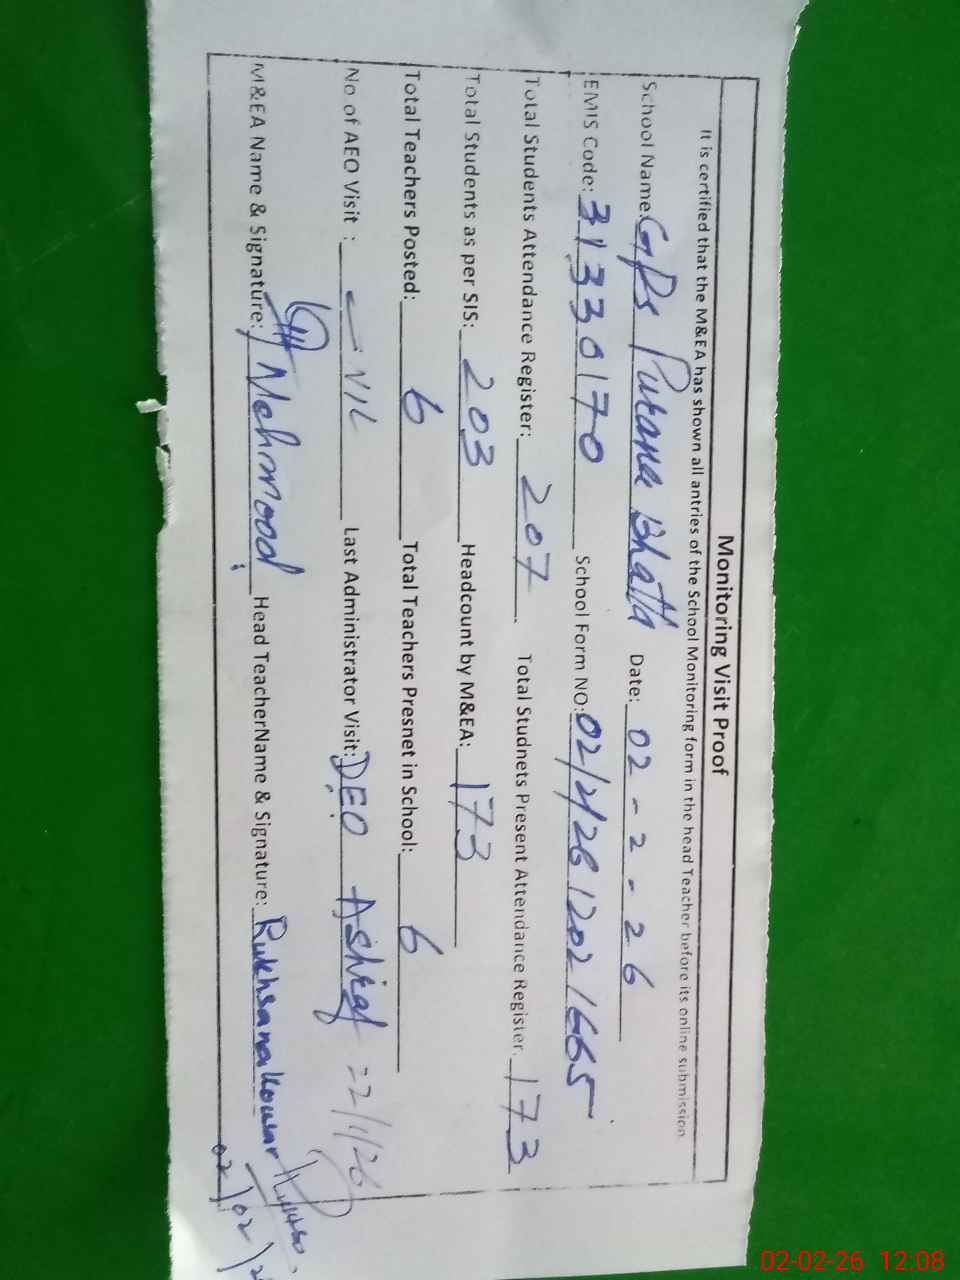 Monitoring Visit Proof
It is certified that the M&EA has shown all antries of the School Monitoring form in the head Teacher before its online submission.
School Name: GPS Purana Bhatta Date: 02-2-26
EMIS Code: 31330170 School Form NO: 02/2/26 1202 1665
Total Students Attendance Register: 207 Total Studnets Present Attendance Register. 173
Total Students as per SIS: 203 Headcount by M&EA: 173
Total Teachers Posted: 6 Total Teachers Presnet in School: 6
No of AEO Visit : NIL Last Administrator Visit: DEO Ashraf =2/1/26
M&EA Name & Signature: Mehmood Head TeacherName & Signature: Rukhsana Kousar
02/02/2
02-02-26 12:08